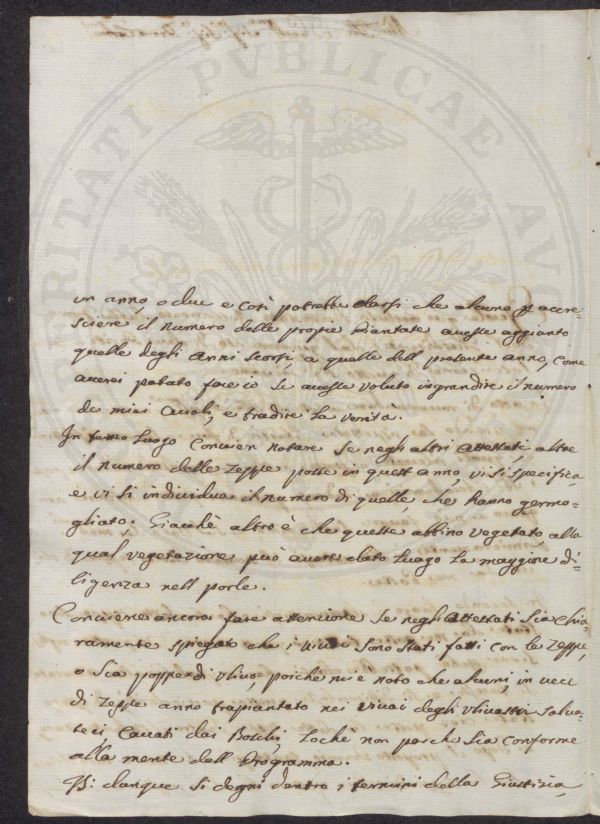 PROSPERITATI PVBLICAE AVG
un anno, o due e così potrebbe darsi che alcuno p accre=
sciere il numero delle proprie Piantate avesse aggiunto
quelle degli Anni scorsi, a quelle dell presente anno, come
averei potuto fare io se avesse voluto ingrandire il numero
de miei Avoli, e tradire la verità.
In terzo luogo convien notare se negli altri Attestati, oltre
il numero delle Zeppe poste in quest anno, vi si specifica
e vi si individua il numero di quelle, che hanno germo=
gliato; Giacchè altro è che queste abbino vegetato, alla
qual vegetazione può avere dato luogo la maggiore di=
ligenza nell porle.
Conviene ancora fare attenzione se negli Attestati sia chia=
ramente spiegato che i vivai sono stati fatti con le Zeppe,
o sia poppe di Ulivo, poichè mi è noto che alcuni, in vece
di Zeppe anno trapiantato nei vivai degli Ulivastri salva=
teci, Cavati dai Boschi, Lochè non par che sia conforme
alla mente dell Programma.
dunque si degni dentro i termini della Giustizia